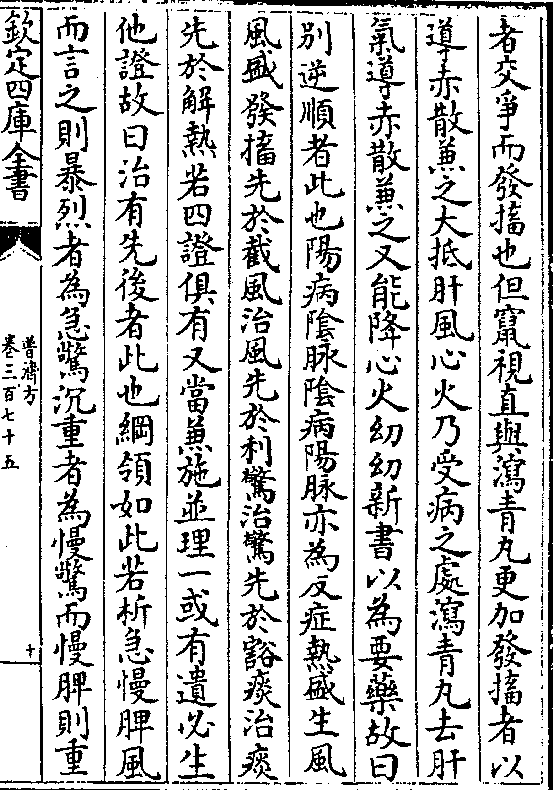 者交爭而發搐也但竄視直與瀉青丸更加發搐者以
導赤散兼之大抵肝風心火乃受病之處瀉青丸去肝
氣導赤散兼之又能降心火幼幼新書以為要藥故曰
别逆順者此也陽病陰脉陰病陽脉亦為反症熱盛生風
風盛發搐先於截風治風先於利驚治驚先於豁痰治痰
先於解熱若四證俱有又當兼施並理一或有遺必生
他證故曰治有先後者此也綱領如此若析急慢脾風
而言之則暴烈者為急驚沉重者為慢驚而慢脾則重
欽定四庫全書
普濟方
卷三百七十五
十